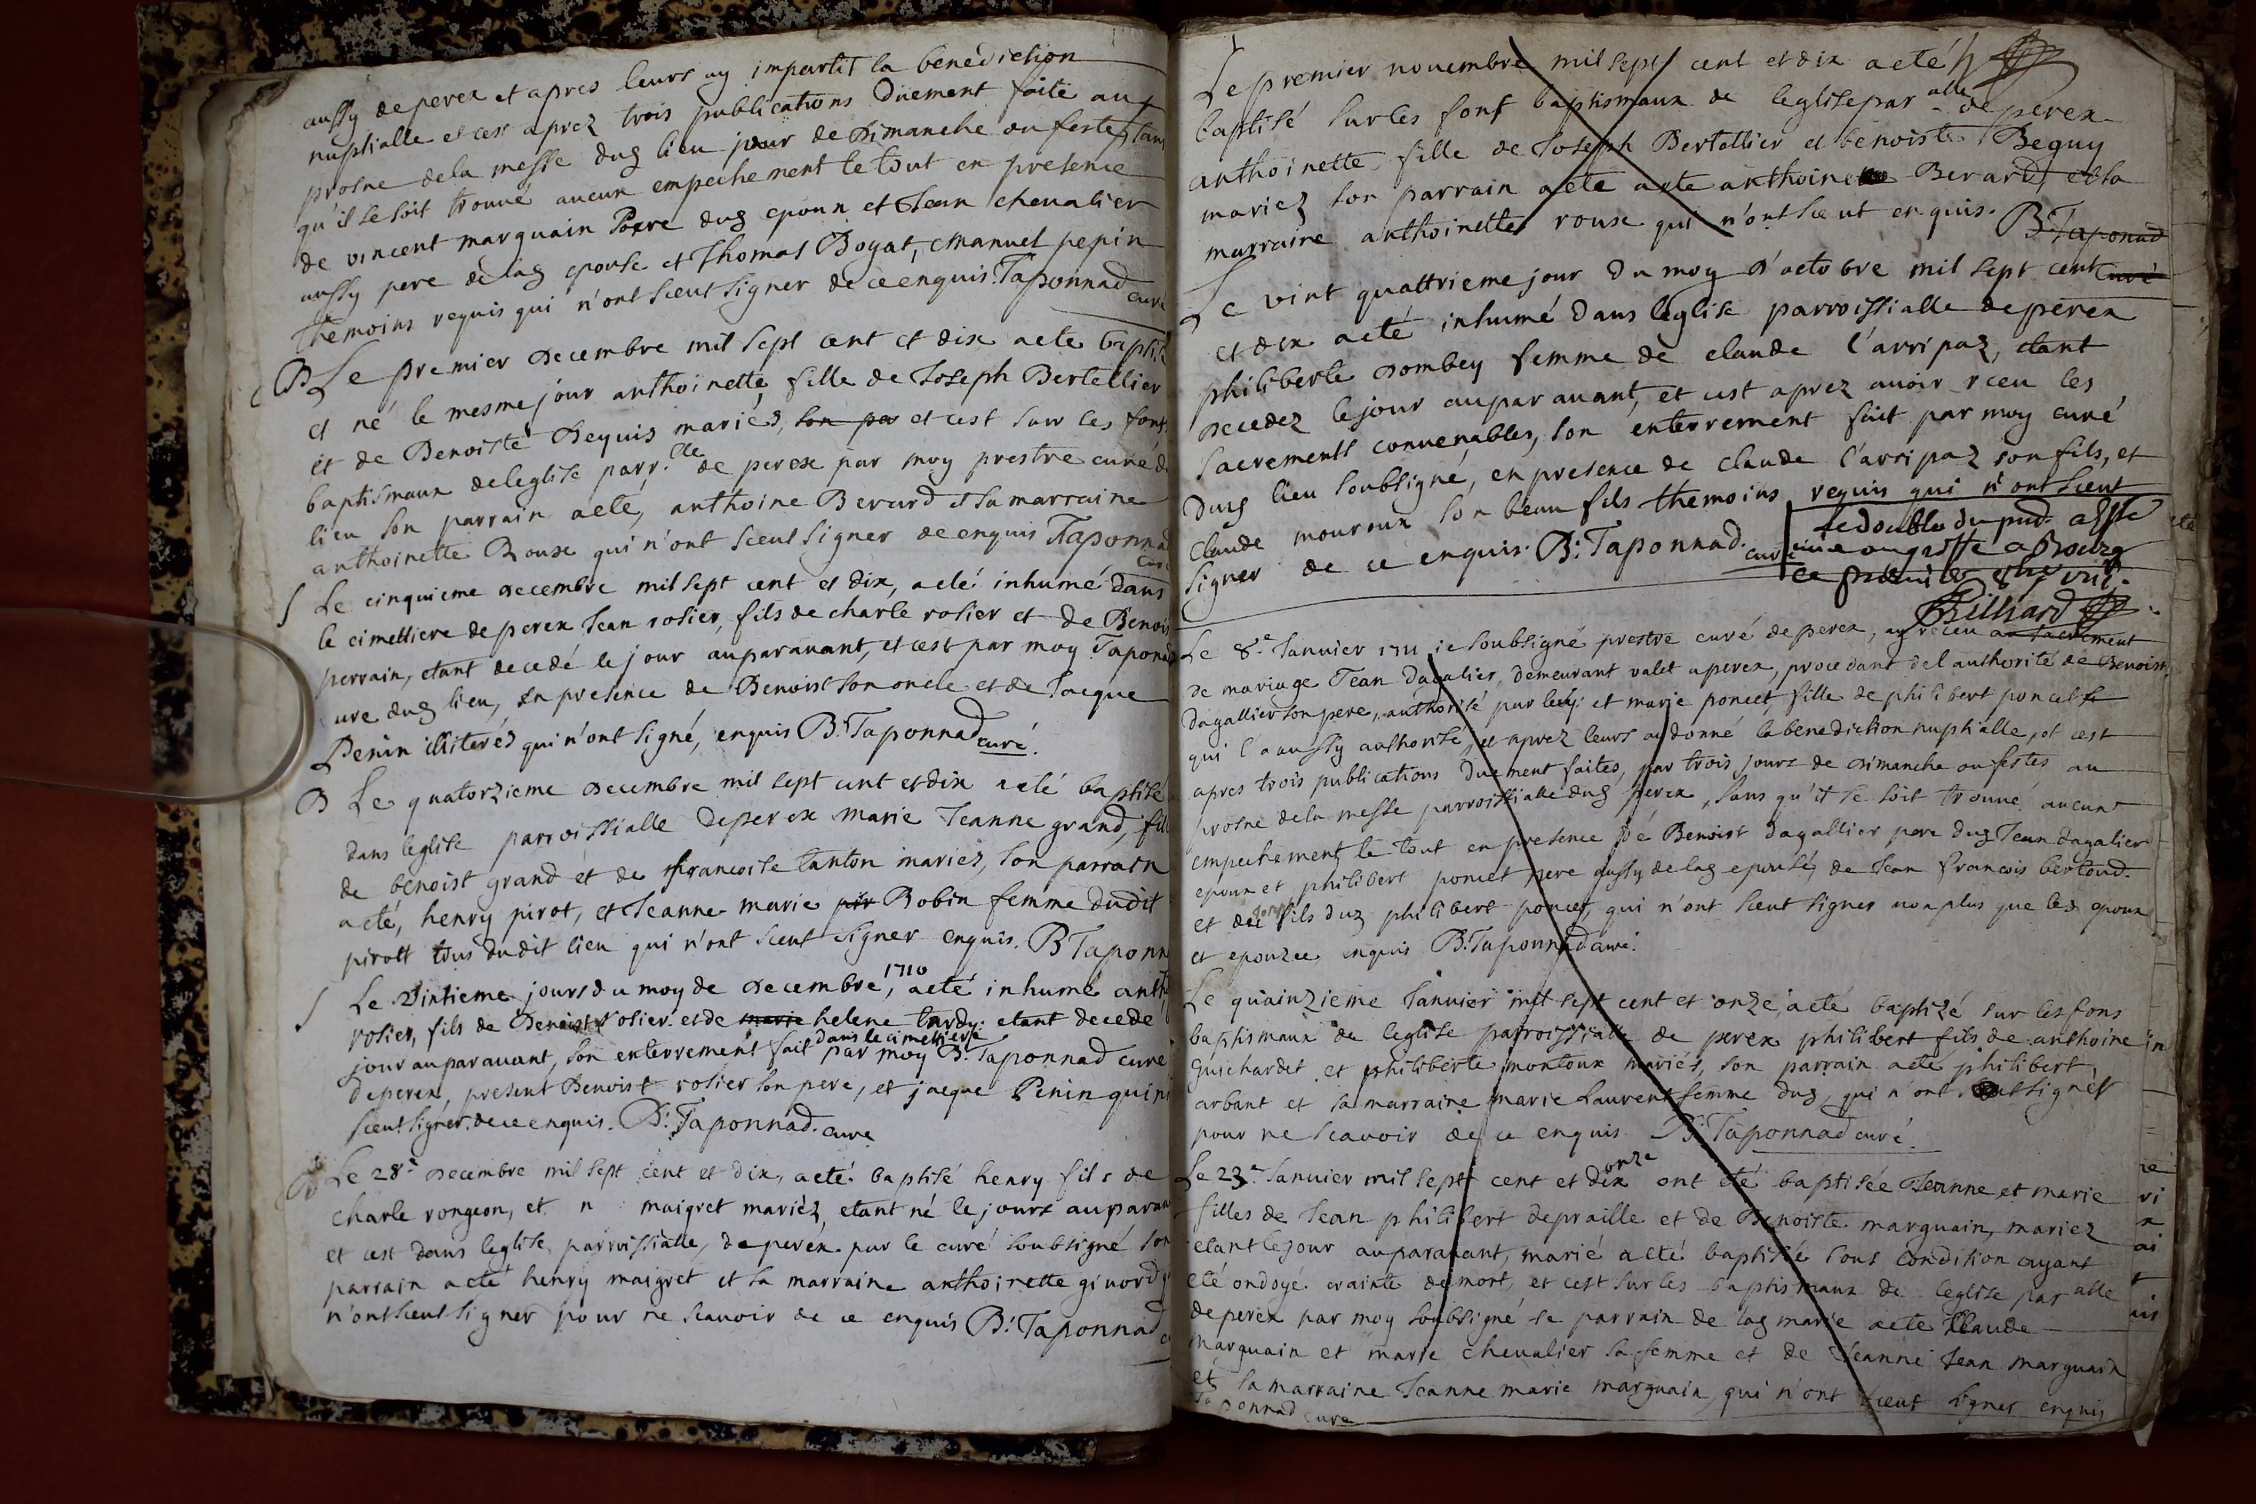 aussy de perex et apres leurs ay impartit la benediction
nuptialle et cest aprez trois publications Düement faite au
prosne de la messe dug lieu jour de Dimanche ou feste, sans
qu'il se soit trouué aucun empechement le tout en presence
de vincent marguain Pere dug epoux et Jean cheualier
aussy pere de lag epouse et Thomas Bogat, Emanuel pepin
themoins requis qui n'ont sceut signer de ce enquis. Taponnad curé
B Le premier decembre mil sept cent et dix aete baptisé
et né le mesme jour anthoinette, fille de Joseph Bertellier
et de Benoiste Bequis mariés, son par et cest sur les fonts
baptismaux de leglise parr.lle de perex par moy prestre curé d
lieu son parrain aete, anthoine Berard et sa marraine
anthoinette Rouse qui n'ont sceut signer de enquis Taponnad
curé
S Le cinquieme decembre mil sept cent et dix, aeté inhumé Dans
le cimettiere de perex Jean rosier, fils de charle rosier et de Benois
perrain, etant decedé le jour auparauant, et cest par moy Taponad
cure dug lieu, en presence de Benoist son oncle et de Jacque
Penin illiterés qui n'ont signé, enquis B. Taponnad curé.
B Le quatorzieme decembre mil sept cent et dix aeté baptisé
dans leglise parroissialle de perex marie Jeanne grand, fil
de benoist grand et de francoise tanton mariez, son parrain
acté, henry pirot, et Jeanne marie pir Bobin femme dudit
pirott tous dudit lieu qui n'ont sceut signer enquis. B Taponn
S Le Vintieme jours du moy de decembre, 1710 aeté inhumé anth
rosier, fils de Benoist rosier et de marie helene tardy etant decede
jour auparauant, son enterrement fait dans le cimettiere par moy B. Taponnad curé
de perex, present Benoist rosier son pere, et jacque Penin qui n
sceut signer de ce enquis. B. Taponnad. curé
B Le 28e decembre mil sept cent et dix, aeté baptisé henry fils de
charle rongeon, et n maigret mariéz, etant né le jours auparau
et cest dans leglise parroissialle, de perex par le curé soubsigné son
parrain aeté henry maigret et la marraine anthoinette giuord
n'ont sceut signer pour ne scauoir de ce enquis B. Taponnad
Le premier nouembre mil sept cent et dix aeté
baptisé sur les fons baptismaux de leglise paralle de perex
anthoinette fille de Joseph Bertellier et benoiste Beguy
mariez son parrain aete aete anthoine Berard et la
marraine anthoinette rouse qui n'ont sceut enquis. B. Taponad
curé
Le vint quattrieme jour du moy d'actobre mil sept cent
et dix aeté inhumé dans leglise parroissialle de perex
philiberte Dombey femme de claude l'arripaz, etant
decedez le jour auparauant, et cest aprez auoir rceu les
sacrements conuenables, son enterrement fait par moy curé
dug lieu soubsigné, en presence de claude l'arripaz son fils, et
claude mouroux son beau fils themoins requis qui n'ont sceut
signer de ce enquis. B. Taponnad. curé
le double du pnt
au greffe a Bourg
Billiard
Le 8.e Januier 1711 ie soubsigné prestre curé de perex, ay receu au sacrement
de mariage Jean Dagalier, demeurant valet a perex, procedant de l authorité de Benoist
Dagallier son pere, authorisé par luy et marie poncet, fille de philibert poncet
qui l'a aussy authorisé, et aprez leurs ay donné la benediction nuptialle, et cest
apres trois publications duement faites, par trois jours de dimanche ou festes au
prosne de la messe parroissialle dug perex, sans qu'il se soit trouué aucuns
empechement, le tout en presence de Benoist Dagallier pere dug Jean dagalier
epoux et philibert poncet pere aussy de lag epousé, de Jean francois bertoud.
et de fils dug philibert poncet, qui n'ont sceut signer non plus que les epoux
et epouzee enquis B. Taponnad curé.
Le quainzieme Januier mil sept cent et onze aeté baptizé sur les fons
baptismaux de leglise parroissialle de perex philibert fils de anthoine
Guichardet et philiberte montoux mariés, son parrain aeté philibert
arbant et sa marraine marie Laurent femme dug, qui n'ont signer
pour ne scauoir de ce enquis B. Taponnad curé.
Le 23e Januier mil sept cent et dix onze ont été baptisée Jeanne et marie
filles de Jean philibert depraille et de Benoiste marguain, mariez
etant le jour auparauant, marié aeté baptisée sous condition ayant
eté ondoyé crainte de mort, et cest sur les baptismaux de leglise paralle
de perex par moy soubsigné le parrain de lag marie aeté Claude
marguain et marie cheualier sa femme et de Jeanne Jean marguain
et la marraine Jeanne marie marguain, qui n'ont sceut signer enquis
Taponnad curé